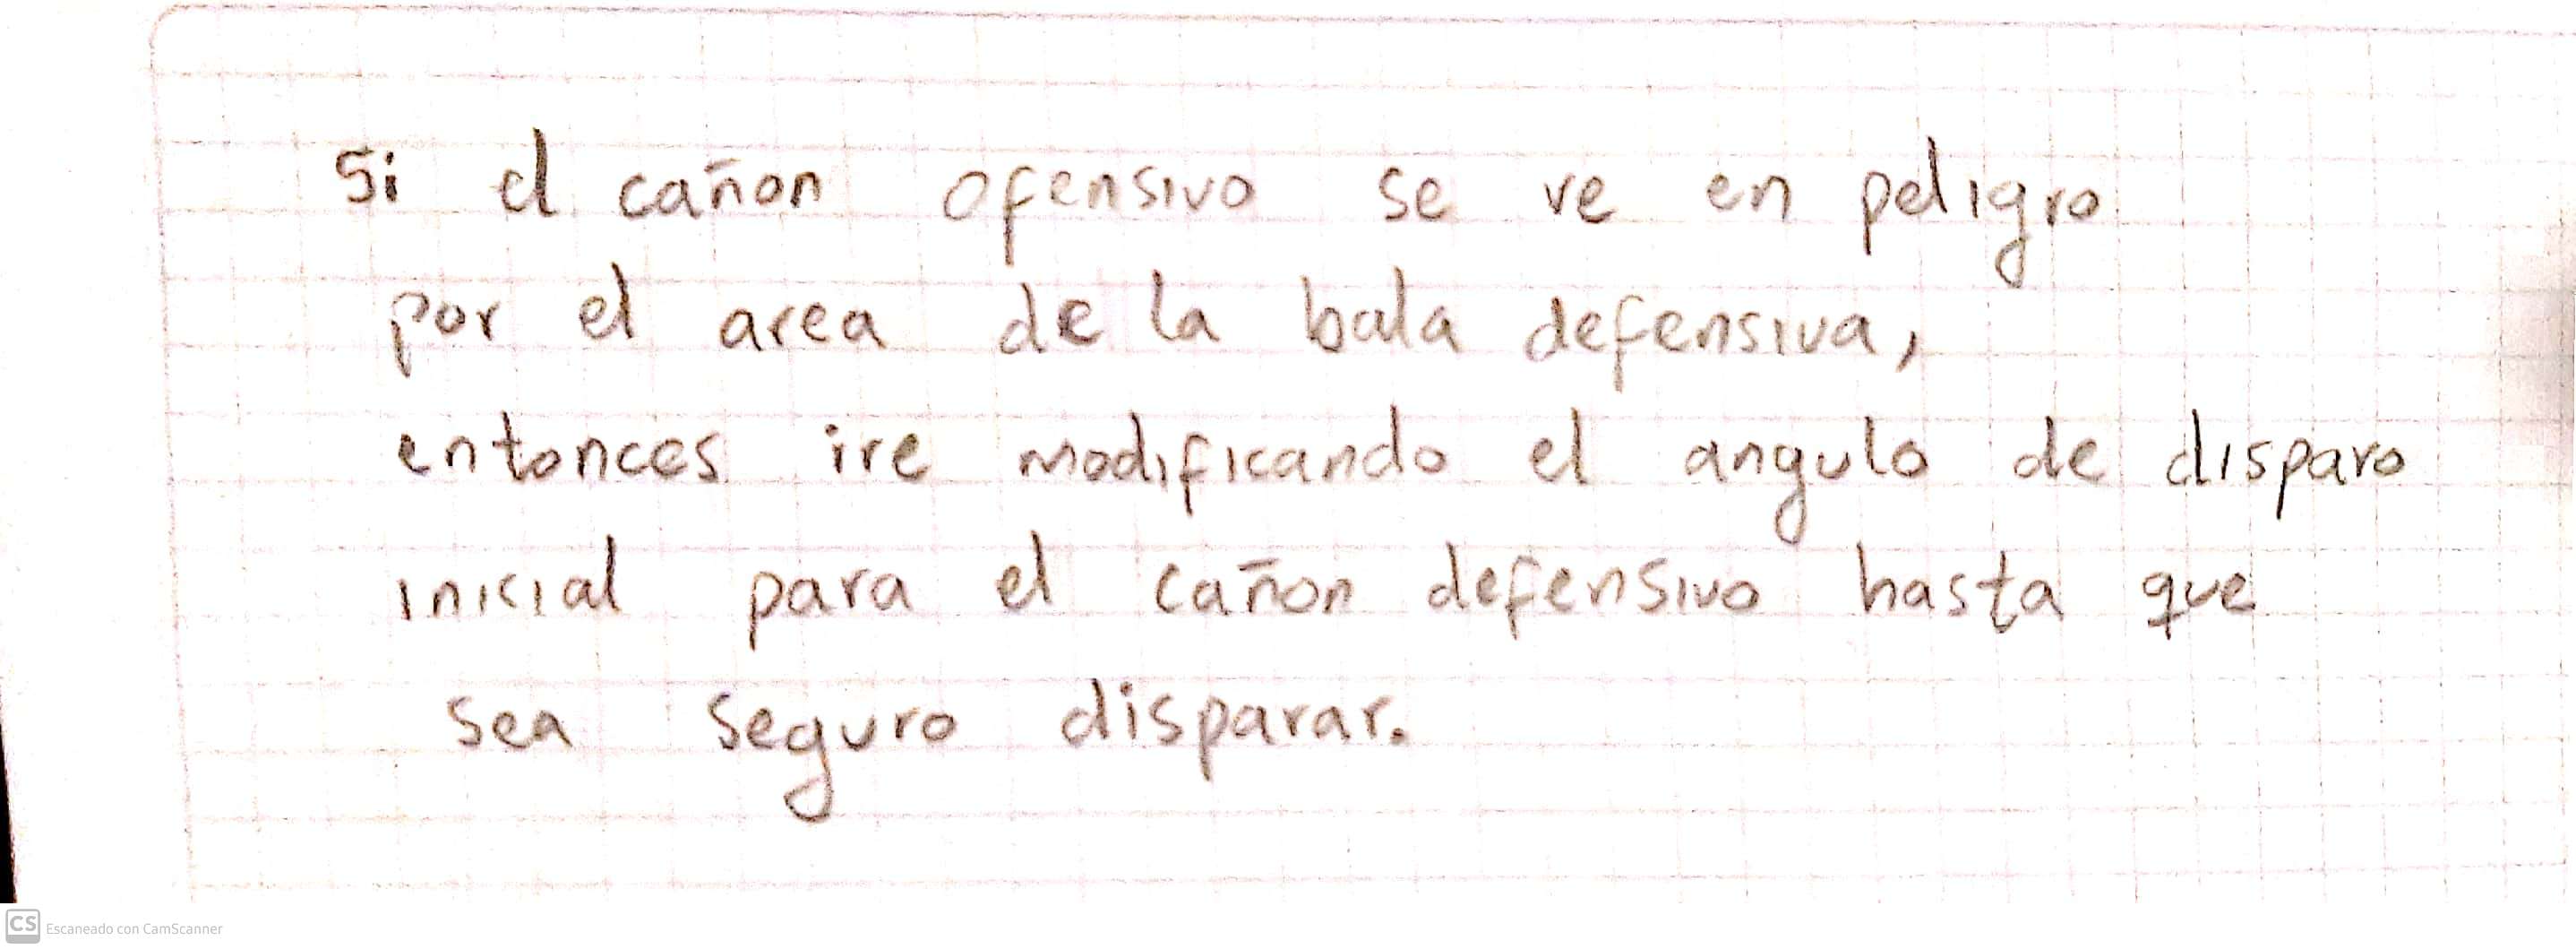 Si el cañon ofensivo se ve en peligro
por el area de la bala defensiva,
entonces ire modificando el angulo de disparo
inicial para el cañon defensivo hasta que
sea seguro disparar.
CS Escaneado con CamScanner